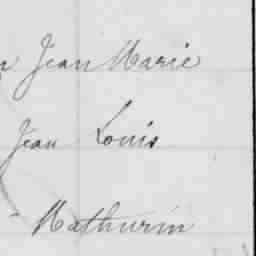 Jean Marie
Jean Louis
Mathurin